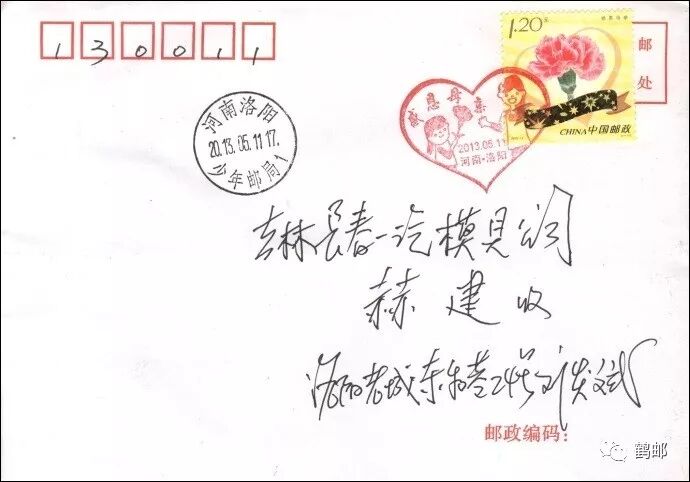 130011
1.20元
感恩母亲
邮
处
感恩母亲
2013.05.11
河南·洛阳
中国邮政
CHINA
河南洛阳
2013.05.11 17
少年邮局1
吉林长春一汽模具公司
赫建收
洛阳老城东
邮政编码:
鹤邮